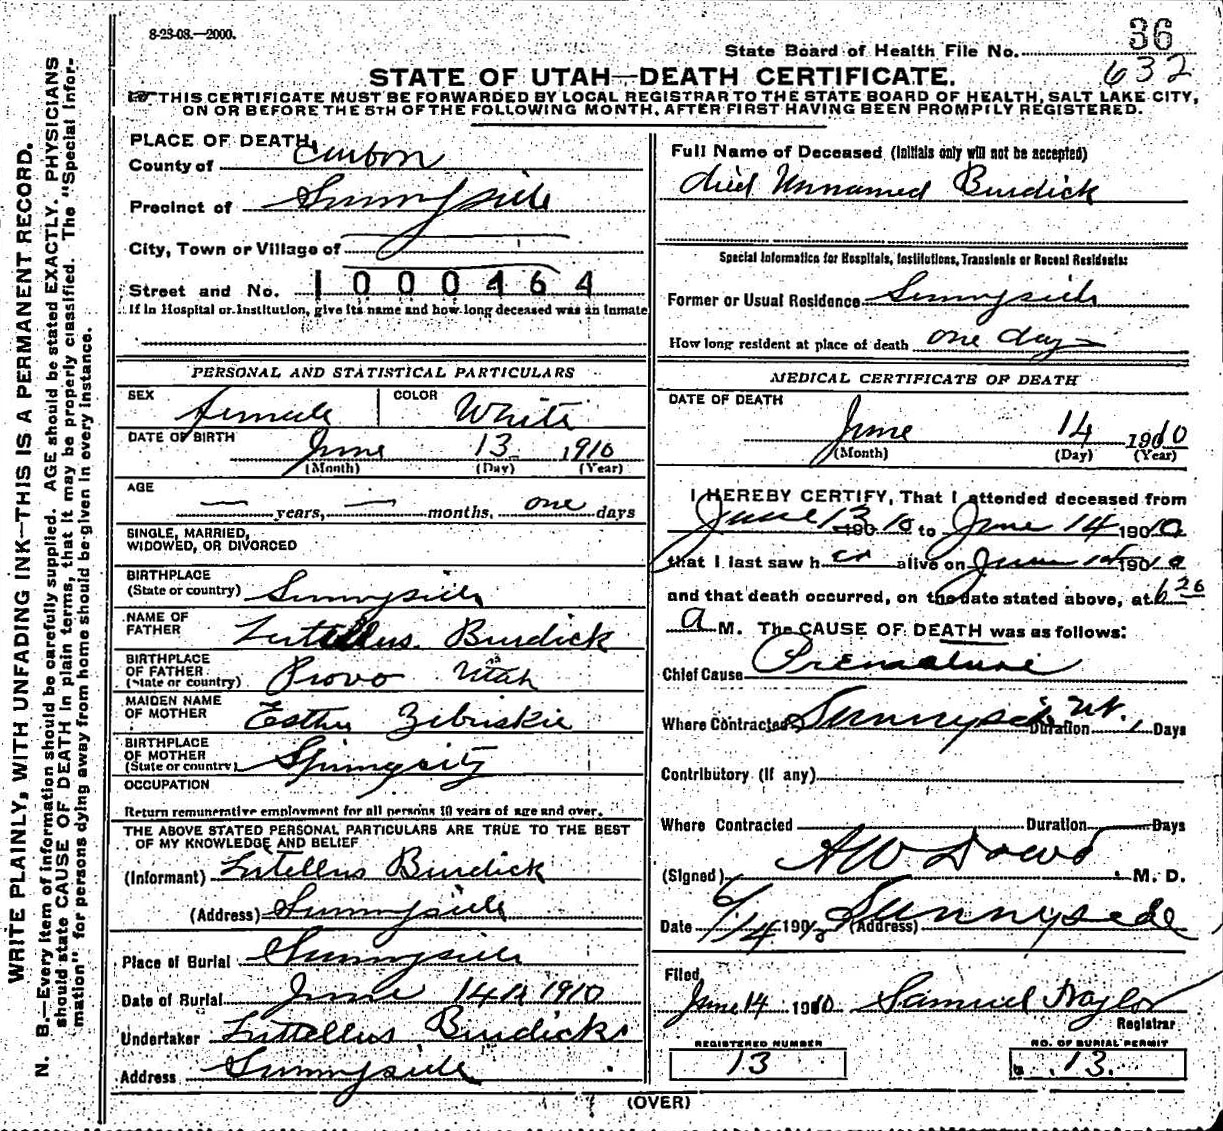 8-23-08.—2000.
36
State Board of Health File No.
632
STATE OF UTAH—DEATH CERTIFICATE.
THIS CERTIFICATE MUST BE FORWARDED BY LOCAL REGISTRAR TO THE STATE BOARD OF HEALTH, SALT LAKE CITY,
ON OR BEFORE THE 5TH OF THE FOLLOWING MONTH, AFTER FIRST HAVING BEEN PROMPTLY REGISTERED.
WRITE PLAINLY, WITH UNFADING INK—THIS IS A PERMANENT RECORD.
N. B.—Every item of information should be carefully supplied. AGE should be stated EXACTLY. PHYSICIANS
should state CAUSE OF DEATH in plain terms, that it may be properly classified. The "Special Infor-
mation" for persons dying away from home should be given in every instance.
PLACE OF DEATH,
County of Carbon
Precinct of Sunnyside
City, Town or Village of
Street and No. 1000464
If in Hospital or Institution, give its name and how long deceased was an inmate
PERSONAL AND STATISTICAL PARTICULARS
SEX Female COLOR White
DATE OF BIRTH June 13 1910
(Month) (Day) (Year)
AGE
— years, — months, one days
SINGLE, MARRIED,
WIDOWED, OR DIVORCED
BIRTHPLACE
(State or country) Sunnyside
NAME OF
FATHER Lutellus Burdick
BIRTHPLACE
OF FATHER
(State or country) Provo Utah
MAIDEN NAME
OF MOTHER Esther Zebriskie
BIRTHPLACE
OF MOTHER
(State or country) Spring City
OCCUPATION
Return remunerative employment for all persons 10 years of age and over.
THE ABOVE STATED PERSONAL PARTICULARS ARE TRUE TO THE BEST
OF MY KNOWLEDGE AND BELIEF
(Informant) Lutellus Burdick
(Address) Sunnyside
Place of Burial Sunnyside
Date of Burial June 14th 1910
Undertaker Lutellus Burdick
Address Sunnyside
Full Name of Deceased (Initials only will not be accepted)
died Unnamed Burdick
Special Information for Hospitals, Institutions, Transients or Recent Residents:
Former or Usual Residence Sunnyside
How long resident at place of death one day
MEDICAL CERTIFICATE OF DEATH
DATE OF DEATH
June 14 1910
(Month) (Day) (Year)
I HEREBY CERTIFY, That I attended deceased from
June 13 1910 to June 14 1910
that I last saw her alive on June 14 1910
and that death occurred, on the date stated above, at 6 26
a M. The CAUSE OF DEATH was as follows:
Chief Cause Premature
Where Contracted Sunnyside Ut. Duration 1 Days
Contributory (if any)
Where Contracted Duration Days
(Signed) A W Dowd M. D.
Date 6/14 190 (Address) Sunnyside
Filed
June 14 1910 Samuel Naylor
Registrar
REGISTERED NUMBER
13
NO. OF BURIAL PERMIT
13
(OVER)